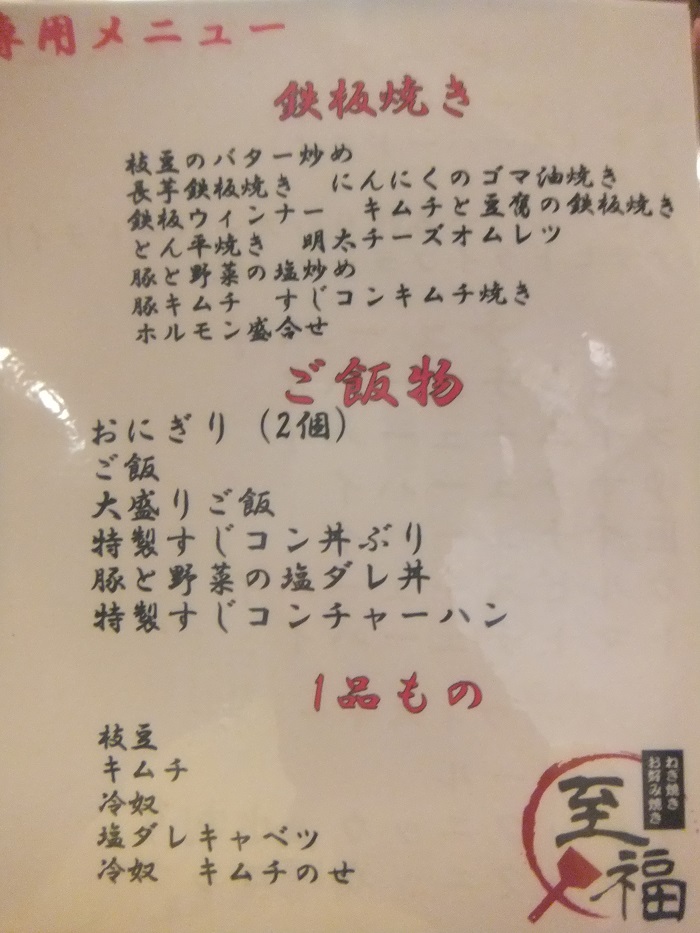 専用メニュー
鉄板焼き
枝豆のバター炒め
長芋鉄板焼き　にんにくのゴマ油焼き
鉄板ウィンナー　キムチと豆腐の鉄板焼き
とん平焼き　明太チーズオムレツ
豚と野菜の塩炒め
豚キムチ　すじコンキムチ焼き
ホルモン盛合せ
ご飯物
おにぎり（2個）
ご飯
大盛りご飯
特製すじコン丼ぶり
豚と野菜の塩ダレ丼
特製すじコンチャーハン
1品もの
枝豆
キムチ
冷奴
塩ダレキャベツ
冷奴　キムチのせ
ねぎ焼き
お好み焼き
至福